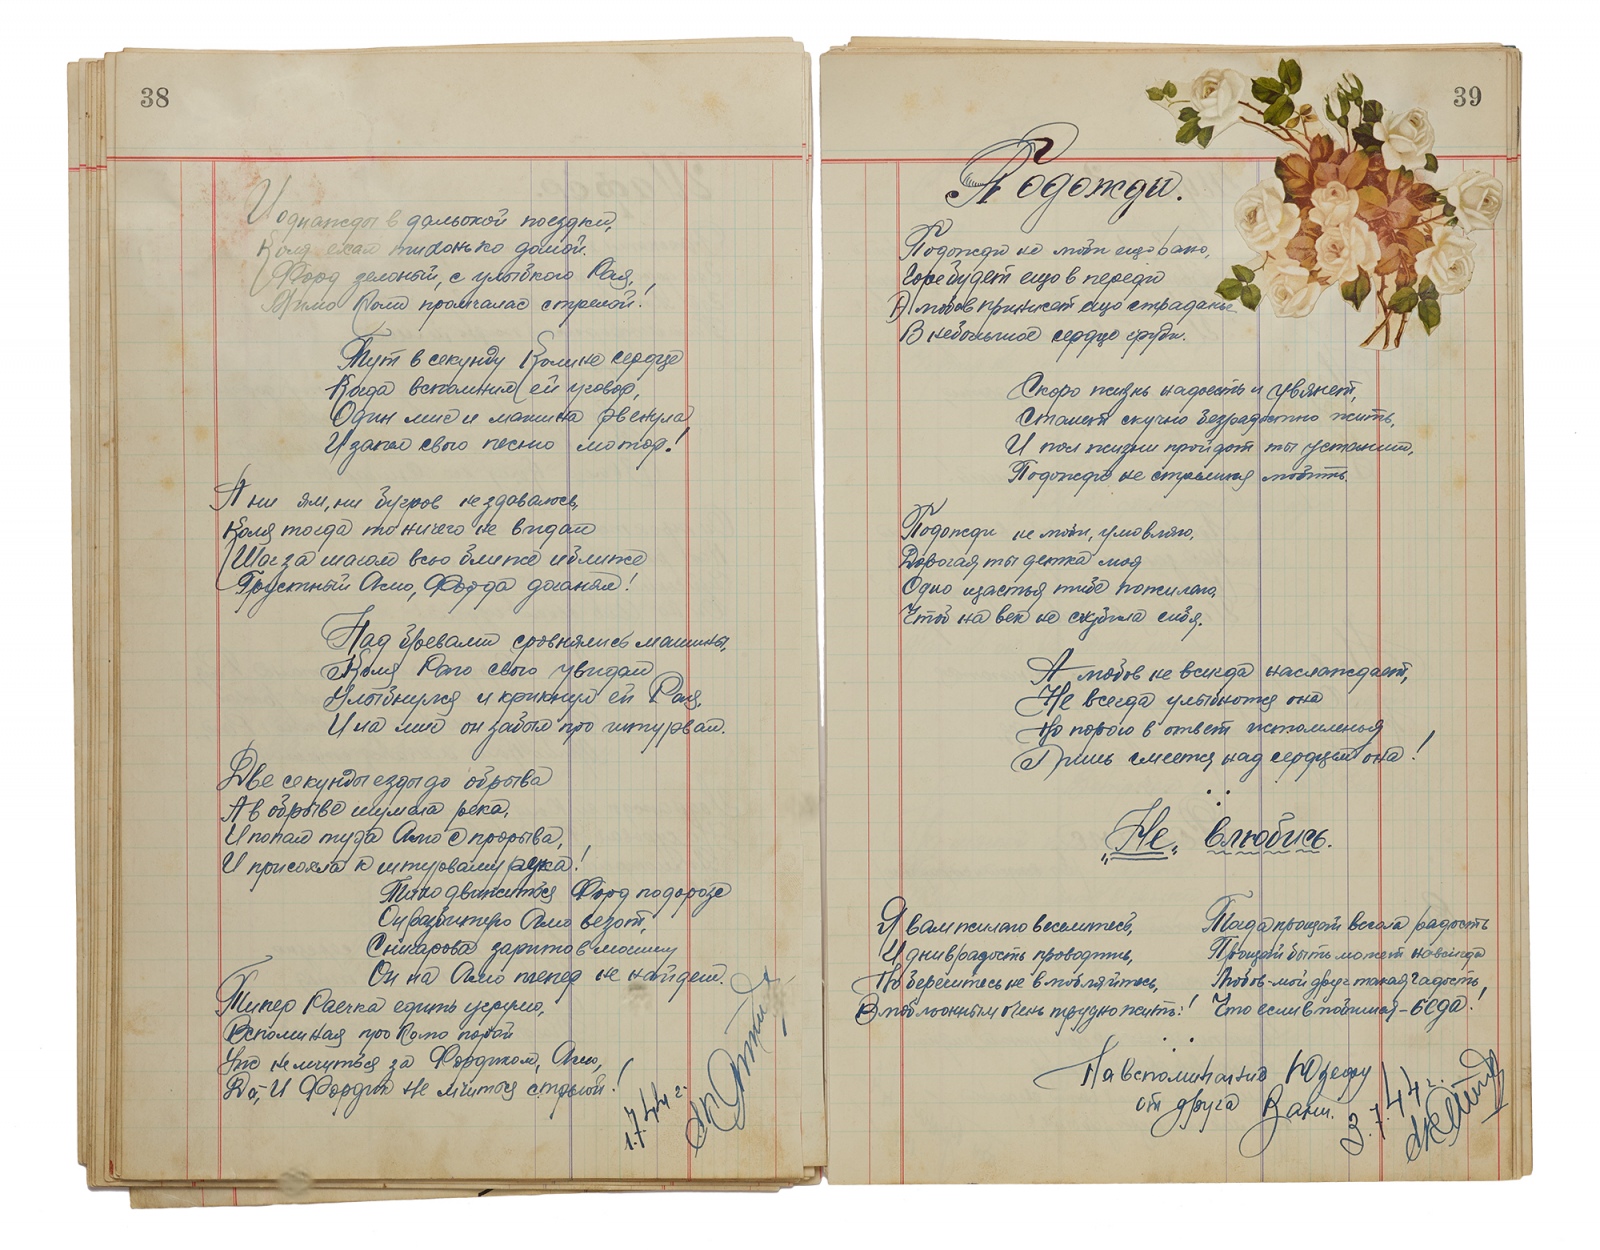 38
И однажды в далькой поездки,
Коля ехал тихонько домой.
Форд зеленый, с улыбкою Рая,
Мимо Коли промчалас стрелой!
Тут в секунду Колине сердце
Когда вспомнил ей уговор,
Один миг и машина рвенула
И запел свою песню мотор!
А ни ям, ни бугров не здавалось,
Коля тогда то ничего не видал
Шаг за шагом всё ближе и ближе
Грустный Амо, Форда доганял!
Над сровнялись машины,
Коля Раю свою увидал
Улыбнулся и крикнул ей Рая,
И на миг он забыл про штурвал.
Две секунды езды до обрыва
А в обрыве шумела река,
И попал туда Амо с прорыва,
И присохла к штурвалу рука!
Тихо движиться Форд по дорозе
Он Амо везот,
зарыто в могилу
Он на Амо тепер не найдет.
Типер Раечка ездить угрумо,
Вспоминая про Колю порой
Уже не мчиться за Фордиком, Амо,
Да, И Фордик не мчиться стрелой!
1.7.44 г.
39
Подожди.
Подожди не люби ещо рано,
Горе будет ещо в переди
А любов принисет ещо страданье
В небольшое сердце груди.
Скоро жизнь надоесть и увянет,
Станет скучно безрадостно жить,
И пол жизни пройдет ты устаниш,
Подожди не стремися любить.
Подожди не люби, умоляю,
Дорогая ты детка моя
Одно щастья тибе пожилаю,
Чтоб на век не сгубила сибя.
А любов не всигда наслаждает,
Не всегда улыбнотся она
Но порою в ответ истомленья
Лишь смеетця над сердцем она!
„Не„ влюбись.
Я вам жилаю веселитесь,
И дни в радость проводить,
Но берегитесь не в любляйтесь,
В любленным очень трудно жить!
Тогда прощай весела радость
Прощай быть может навсигда
Любов - мой друг такая гадость,
Что если влюбишся - беда!
На вспоминание Юзефу
от друга Вани.
3.7.44 г.